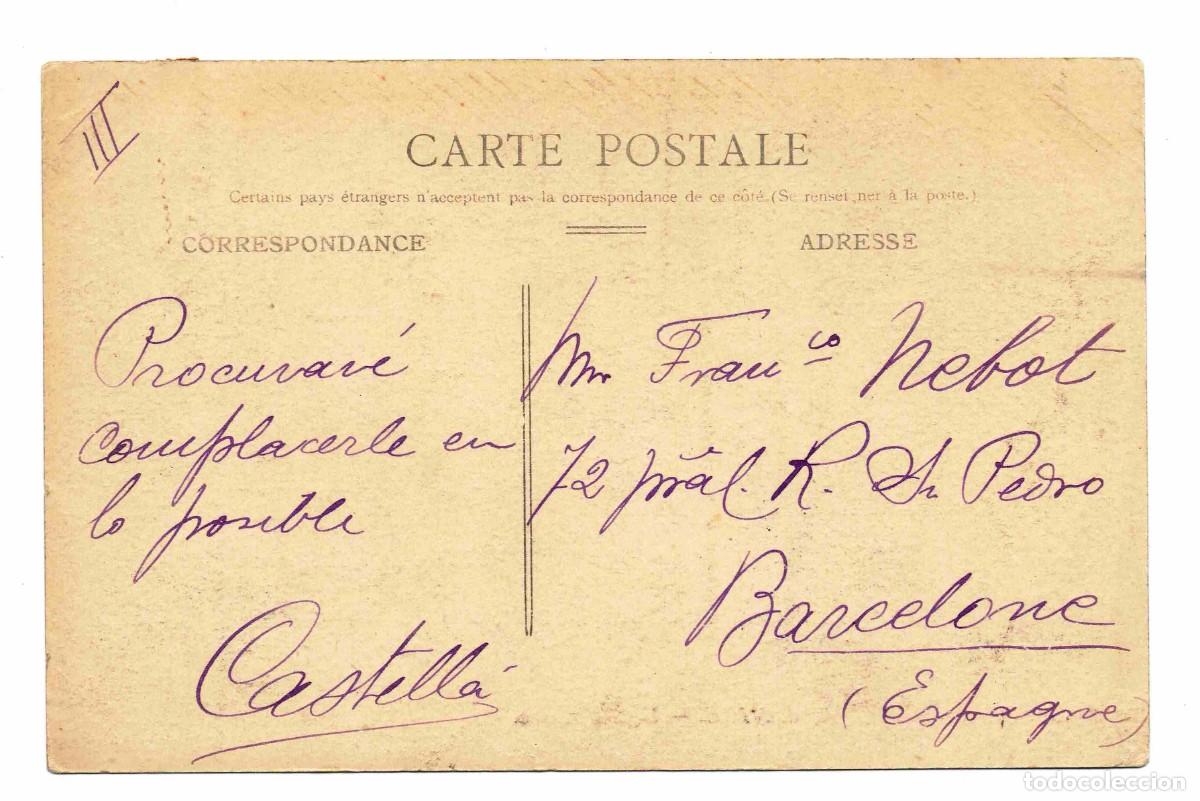 III
CARTE POSTALE
Certains pays étrangers n'acceptent pas la correspondance de ce côté. (Se rensei ner à la poste.)
CORRESPONDANCE
ADRESSE
Procuraré
complacerle en
lo posible
Castellá
Mr Franco Nebot
72 pral. R. Sn Pedro
Barcelone
(Espagne)
todocoleccion